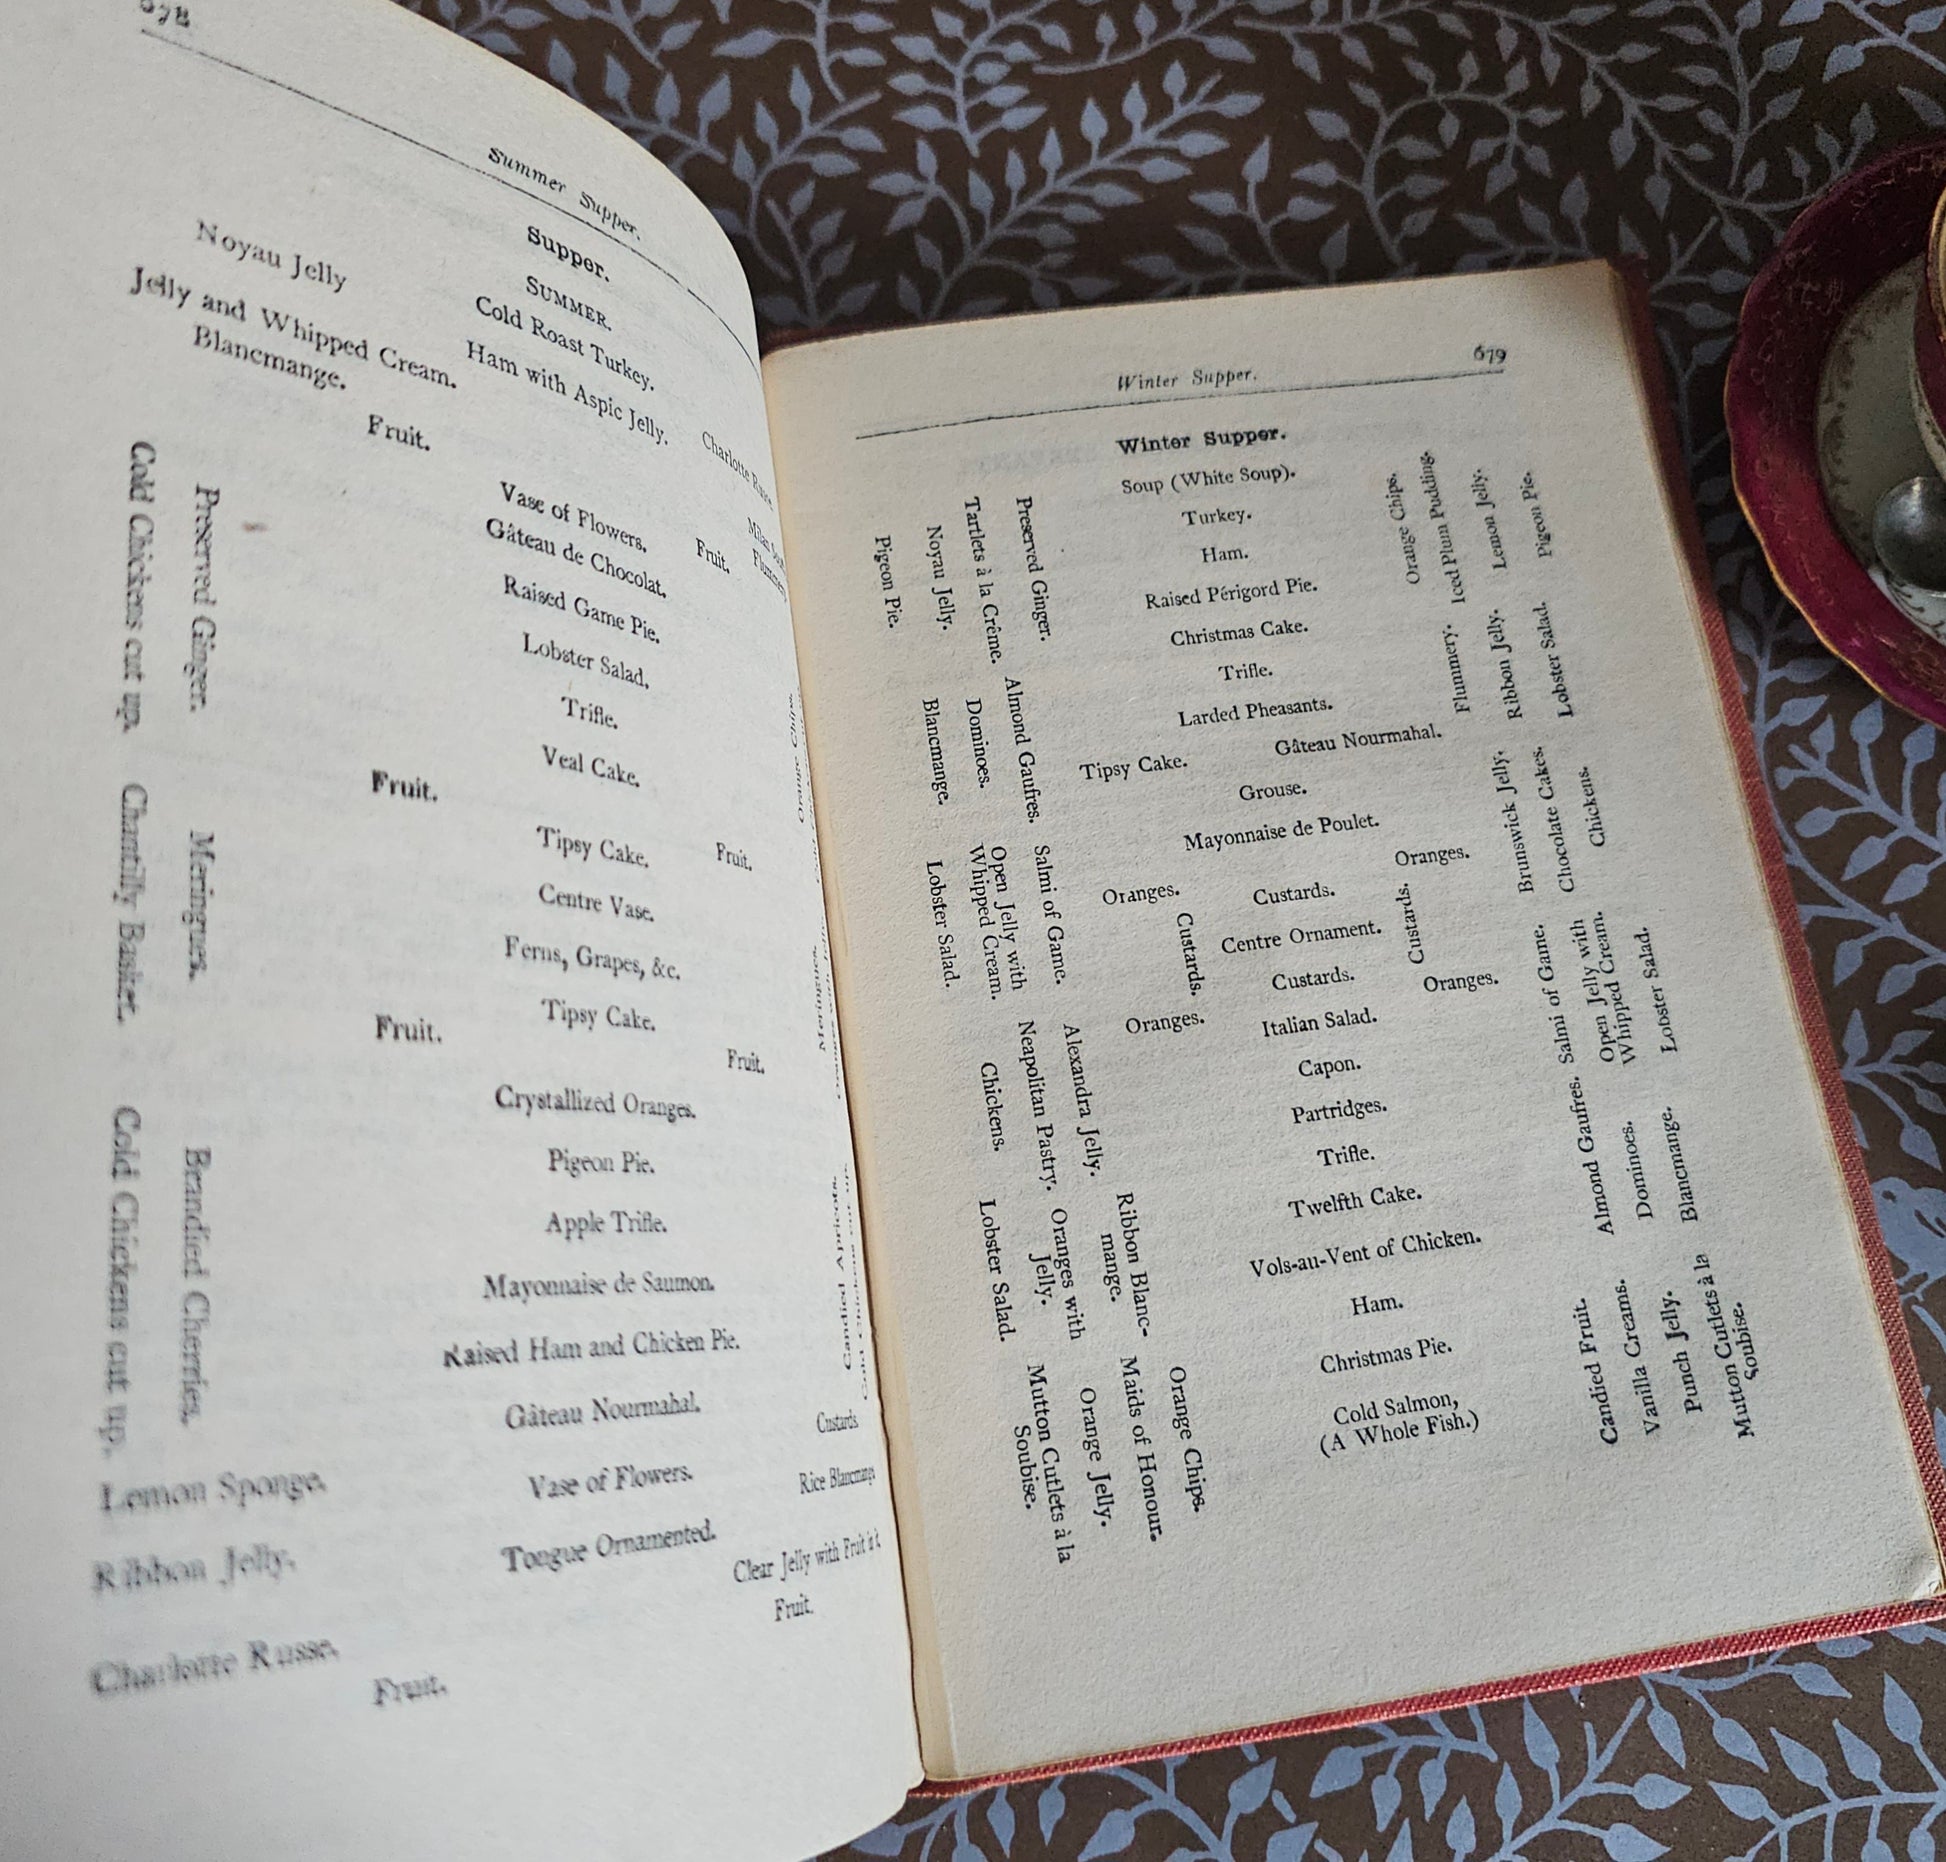 678
Summer Supper.
Supper.
SUMMER.
Noyau Jelly
Cold Roast Turkey.
Jelly and Whipped Cream.
Ham with Aspic Jelly.
Blancmange.
Charlotte
Fruit.
Vase of Flowers.
Fruit.
Gâteau de Chocolat.
Raised Game Pie.
Lobster Salad.
Trifle.
Veal Cake.
Fruit.
Tipsy Cake.
Fruit.
Centre Vase.
Ferns, Grapes, &c.
Tipsy Cake.
Fruit.
Fruit.
Crystallized Oranges.
Pigeon Pie.
Apple Trifle.
Mayonnaise de Saumon.
Raised Ham and Chicken Pie.
Gâteau Nourmahal.
Custards
Lemon Sponge.
Vase of Flowers.
Rice Blancmange
Ribbon Jelly.
Tongue Ornamented.
Clear Jelly with Fruit in it
Fruit.
Charlotte Russe.
Fruit.
Cold Chickens cut up.
Chantilly Basket.
Cold Chickens cut up.
Preserved Ginger.
Meringues.
Brandied Cherries.
Orange Chips.
Meringues.
Candied Apricots.
Cold Chickens cut up.
679
Winter Supper.
Winter Supper.
Soup (White Soup).
Turkey.
Ham.
Raised Périgord Pie.
Christmas Cake.
Trifle.
Larded Pheasants.
Gâteau Nourmahal.
Tipsy Cake.
Grouse.
Mayonnaise de Poulet.
Oranges.
Oranges.
Custards.
Custards.
Centre Ornament.
Custards.
Custards.
Oranges.
Oranges.
Italian Salad.
Capon.
Partridges.
Trifle.
Twelfth Cake.
Vols-au-Vent of Chicken.
Ham.
Christmas Pie.
Cold Salmon,
(A Whole Fish.)
Pigeon Pie.
Blancmange.
Lobster Salad.
Chickens.
Lobster Salad.
Mutton Cutlets à la
Soubise.
Noyau Jelly.
Dominoes.
Open Jelly with
Whipped Cream.
Neapolitan Pastry.
Oranges with
Jelly.
Orange Jelly.
Tartlets à la Crême.
Almond Gaufres.
Salmi of Game.
Alexandra Jelly.
Ribbon Blanc-
mange.
Maids of Honour.
Preserved Ginger.
Orange Chips.
Orange Chips.
Iced Plum Pudding.
Lemon Jelly.
Pigeon Pie.
Flummery.
Ribbon Jelly.
Lobster Salad.
Brunswick Jelly.
Chocolate Cakes.
Chickens.
Salmi of Game.
Open Jelly with
Whipped Cream.
Lobster Salad.
Almond Gaufres.
Dominoes.
Blancmange.
Candied Fruit.
Vanilla Creams.
Punch Jelly.
Mutton Cutlets à la
Soubise.